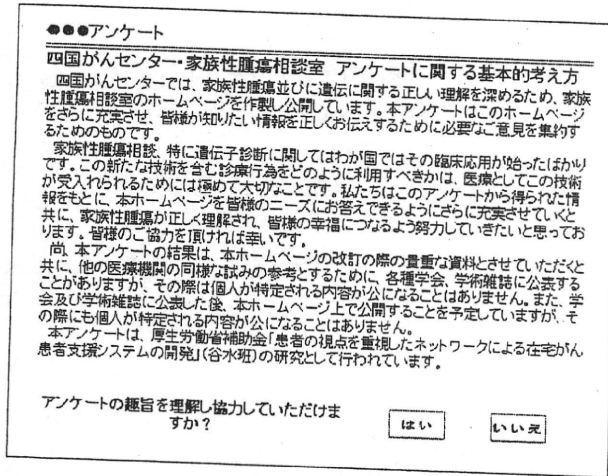 ●●●アンケート
四国がんセンター・家族性腫瘍相談室 アンケートに関する基本的考え方
四国がんセンターでは、家族性腫瘍並びに遺伝に関する正しい理解を深めるため、家族
性腫瘍相談室のホームページを作製し公開しています。本アンケートはこのホームページ
をさらに充実させ、皆様が知りたい情報を正しくお伝えするために必要なご意見を集約す
るためのものです。
家族性腫瘍相談、特に遺伝子診断に関してはわが国ではその臨床応用が始ったばかり
です。この新たな技術を含む診療行為をどのように利用すべきかは、医療としてこの技術
が受入れられるためには極めて大切なことです。私たちはこのアンケートから得られた情
報をもとに、本ホームページを皆様のニーズにお答えできるようにさらに充実させていくと
共に、家族性腫瘍が正しく理解され、皆様の幸福につなるよう努力していきたいと思ってお
ります。皆様のご協力を頂ければ幸いです。
尚、本アンケートの結果は、本ホームページの改訂の際の貴重な資料とさせていただくと
共に、他の医療機関の同様な試みの参考とするために、各種学会、学術雑誌に公表する
ことがありますが、その際は個人が特定される内容が公になることはありません。また、学
会及び学術雑誌に公表した後、本ホームページ上で公開することを予定していますが、そ
の際にも個人が特定される内容が公になることはありません。
本アンケートは、厚生労働省補助会「患者の視点を重視したネットワークによる在宅がん
患者支援システムの開発」(谷水班)の研究として行われています。
アンケートの趣旨を理解し協力していただけま
すか?
はい
いいえ